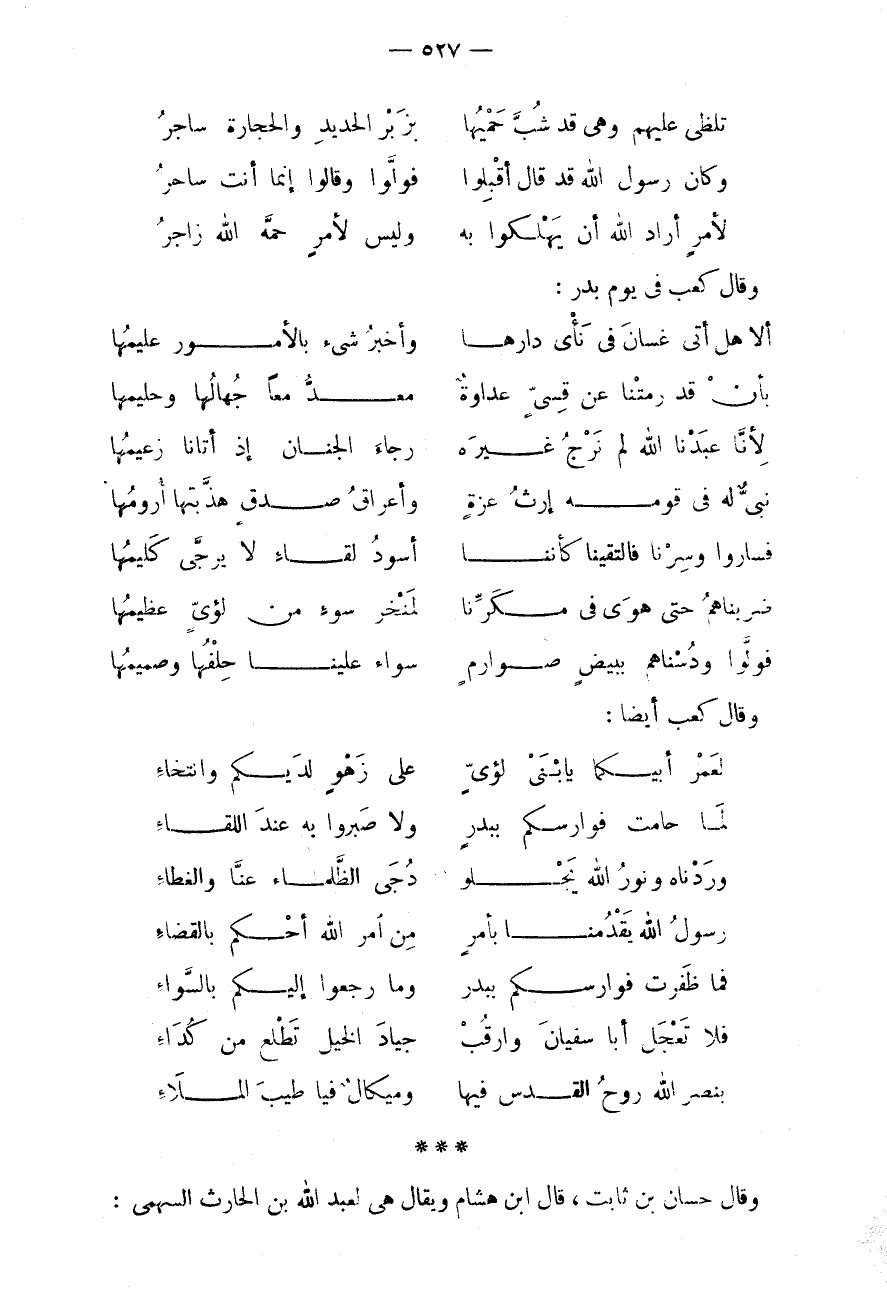 — ٥٢٧ —
تلظى عليهم وهى قد شُبَّ حَمْيُها بزَبْر الحديدِ والحجارة ساجرُ
وكان رسول الله قد قال أقْبِلوا فولَّوا وقالوا إنما أنت ساحرُ
لأمرٍ أراد الله أن يَهْلكوا به وليس لأمرٍ حمَّه الله زاجرُ
وقال كعب فى يوم بدر :
ألا هل أتى غسانَ فى نَأْى دارها وأخبرُ شىء بالأمور عليمُها
بأن قد رمتْنا عن قِسىٍّ عداوةً معدٌّ معاً جُهالُها وحليمها
لِأنَّا عبَدْنا الله لم نَرْجُ غيرَه رجاءَ الجنان إذ أتانا زعيمُها
نبىٌّ له فى قومه إرثُ عزةٍ وأعراقُ صدقٍ هذَّبتها أرومُها
فساروا وسِرْنا فالتقينا كأننا أسودُ لقاءٍ لا يرجَّى كَليمُها
ضربناهمُ حتى هوَى فى مكَرِّنا لمَنْخر سوءٍ من لؤىٍّ عظيمُها
فولَّوا ودُسْناهم ببيضٍ صوارمٍ سواء علينا حِلْفُها وصميمُها
وقال كعب أيضا :
لعَمْر أبيكما يابْنَىْ لؤىٍّ على زَهْوٍ لدَيكم وانتخاءِ
لَما حامت فوارسكم ببدرٍ ولا صَبروا به عندَ اللقاءِ
ورَدْناه ونورُ الله يَجْلو دُجَى الظَّلماء عنَّا والغطاءِ
رسولُ الله يَقْدُمنا بأمرٍ مِن أمر الله أحْكم بالقضاءِ
فما ظَفرت فوارسكم ببدر وما رجعوا إليكم بالسَّواءِ
فلا تَعْجَل أبا سفيانَ وارقُبْ جيادَ الخيل تَطْلع من كُدَاءِ
بنصر الله روحُ القدس فيها وميكالٌ فيا طيبَ الملَاءِ
* * *
وقال حسان بن ثابت ، قال ابن هشام ويقال هى لعبد الله بن الحارث السهمى :